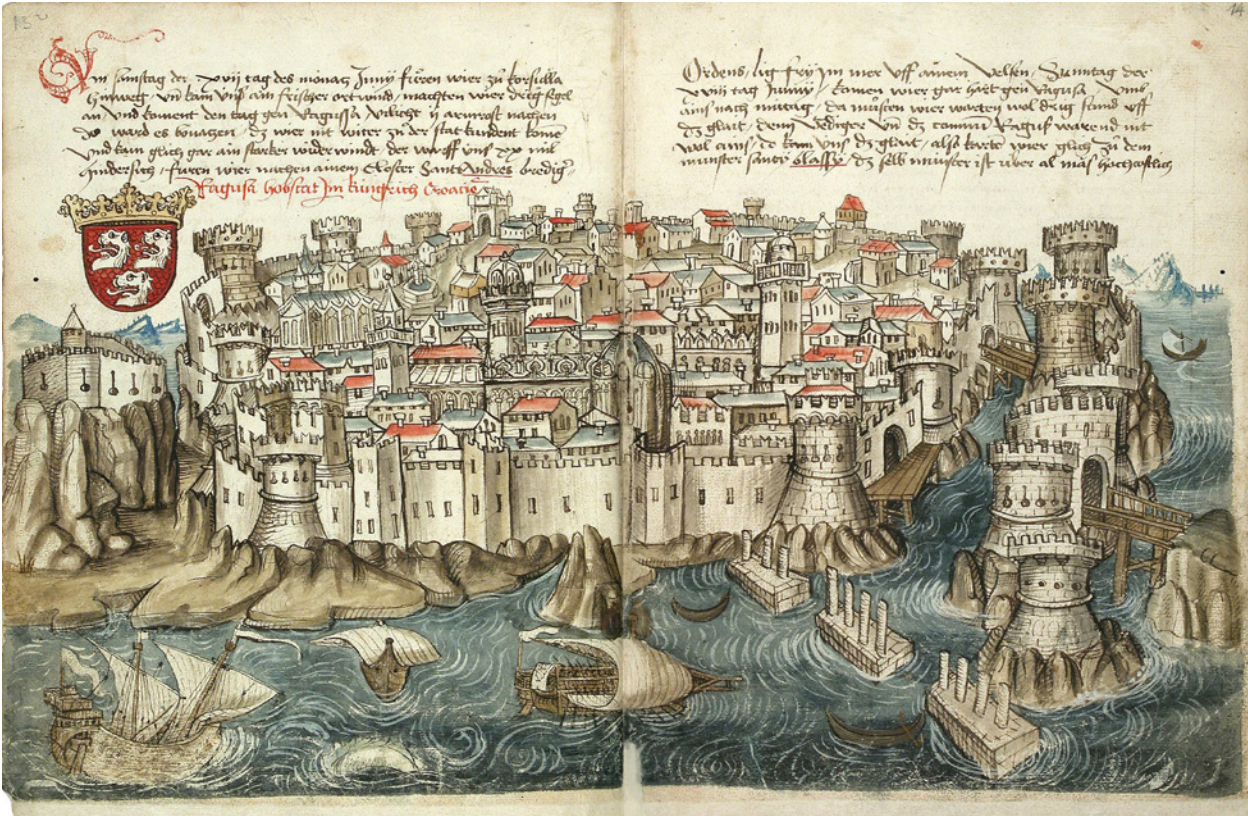 13
14
Am samstag der xvij tag des monatz Junÿ fůren wier zů korsidla
hinweg, vñ kam vnß ain frischer ort wind, machten wier drÿg segel
an vnd koment den tag gen Ragussa vilicht ij armrost nachen
do ward es bonatzen, dz wier nit witer zů der stat kundent komē
vnd kam glich gar ain starker wider wind, der warff vnß xx mil
hindersich, fůren wier nachen ainem Closter Sant Andres bredig
Ragusa hobstat Jm kungrich Croatie
Ordens, lig frÿ Jm mer vff ainem velsen, Sunntag der
xviij tag Junnÿ, komen wier gar hart gen Ragusa, vmb
ains nach mittag, da můsten wier warten wol drÿg stund vff
dz glait, denn Vediger vñ dz comun Raguß warend nit
wol ains, do kam vnß dz glait, also kert wier glich zů dem
munster sancti Blassÿ, dz selb münster ist über al maß hochcostlich